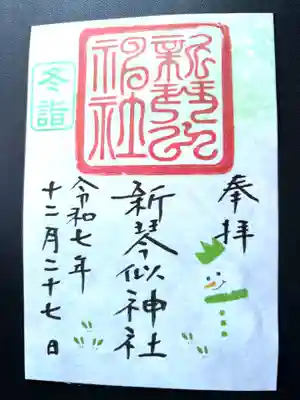 奉拝
新琴似神社
新琴似神社
令和七年
十二月二十七日
冬詣